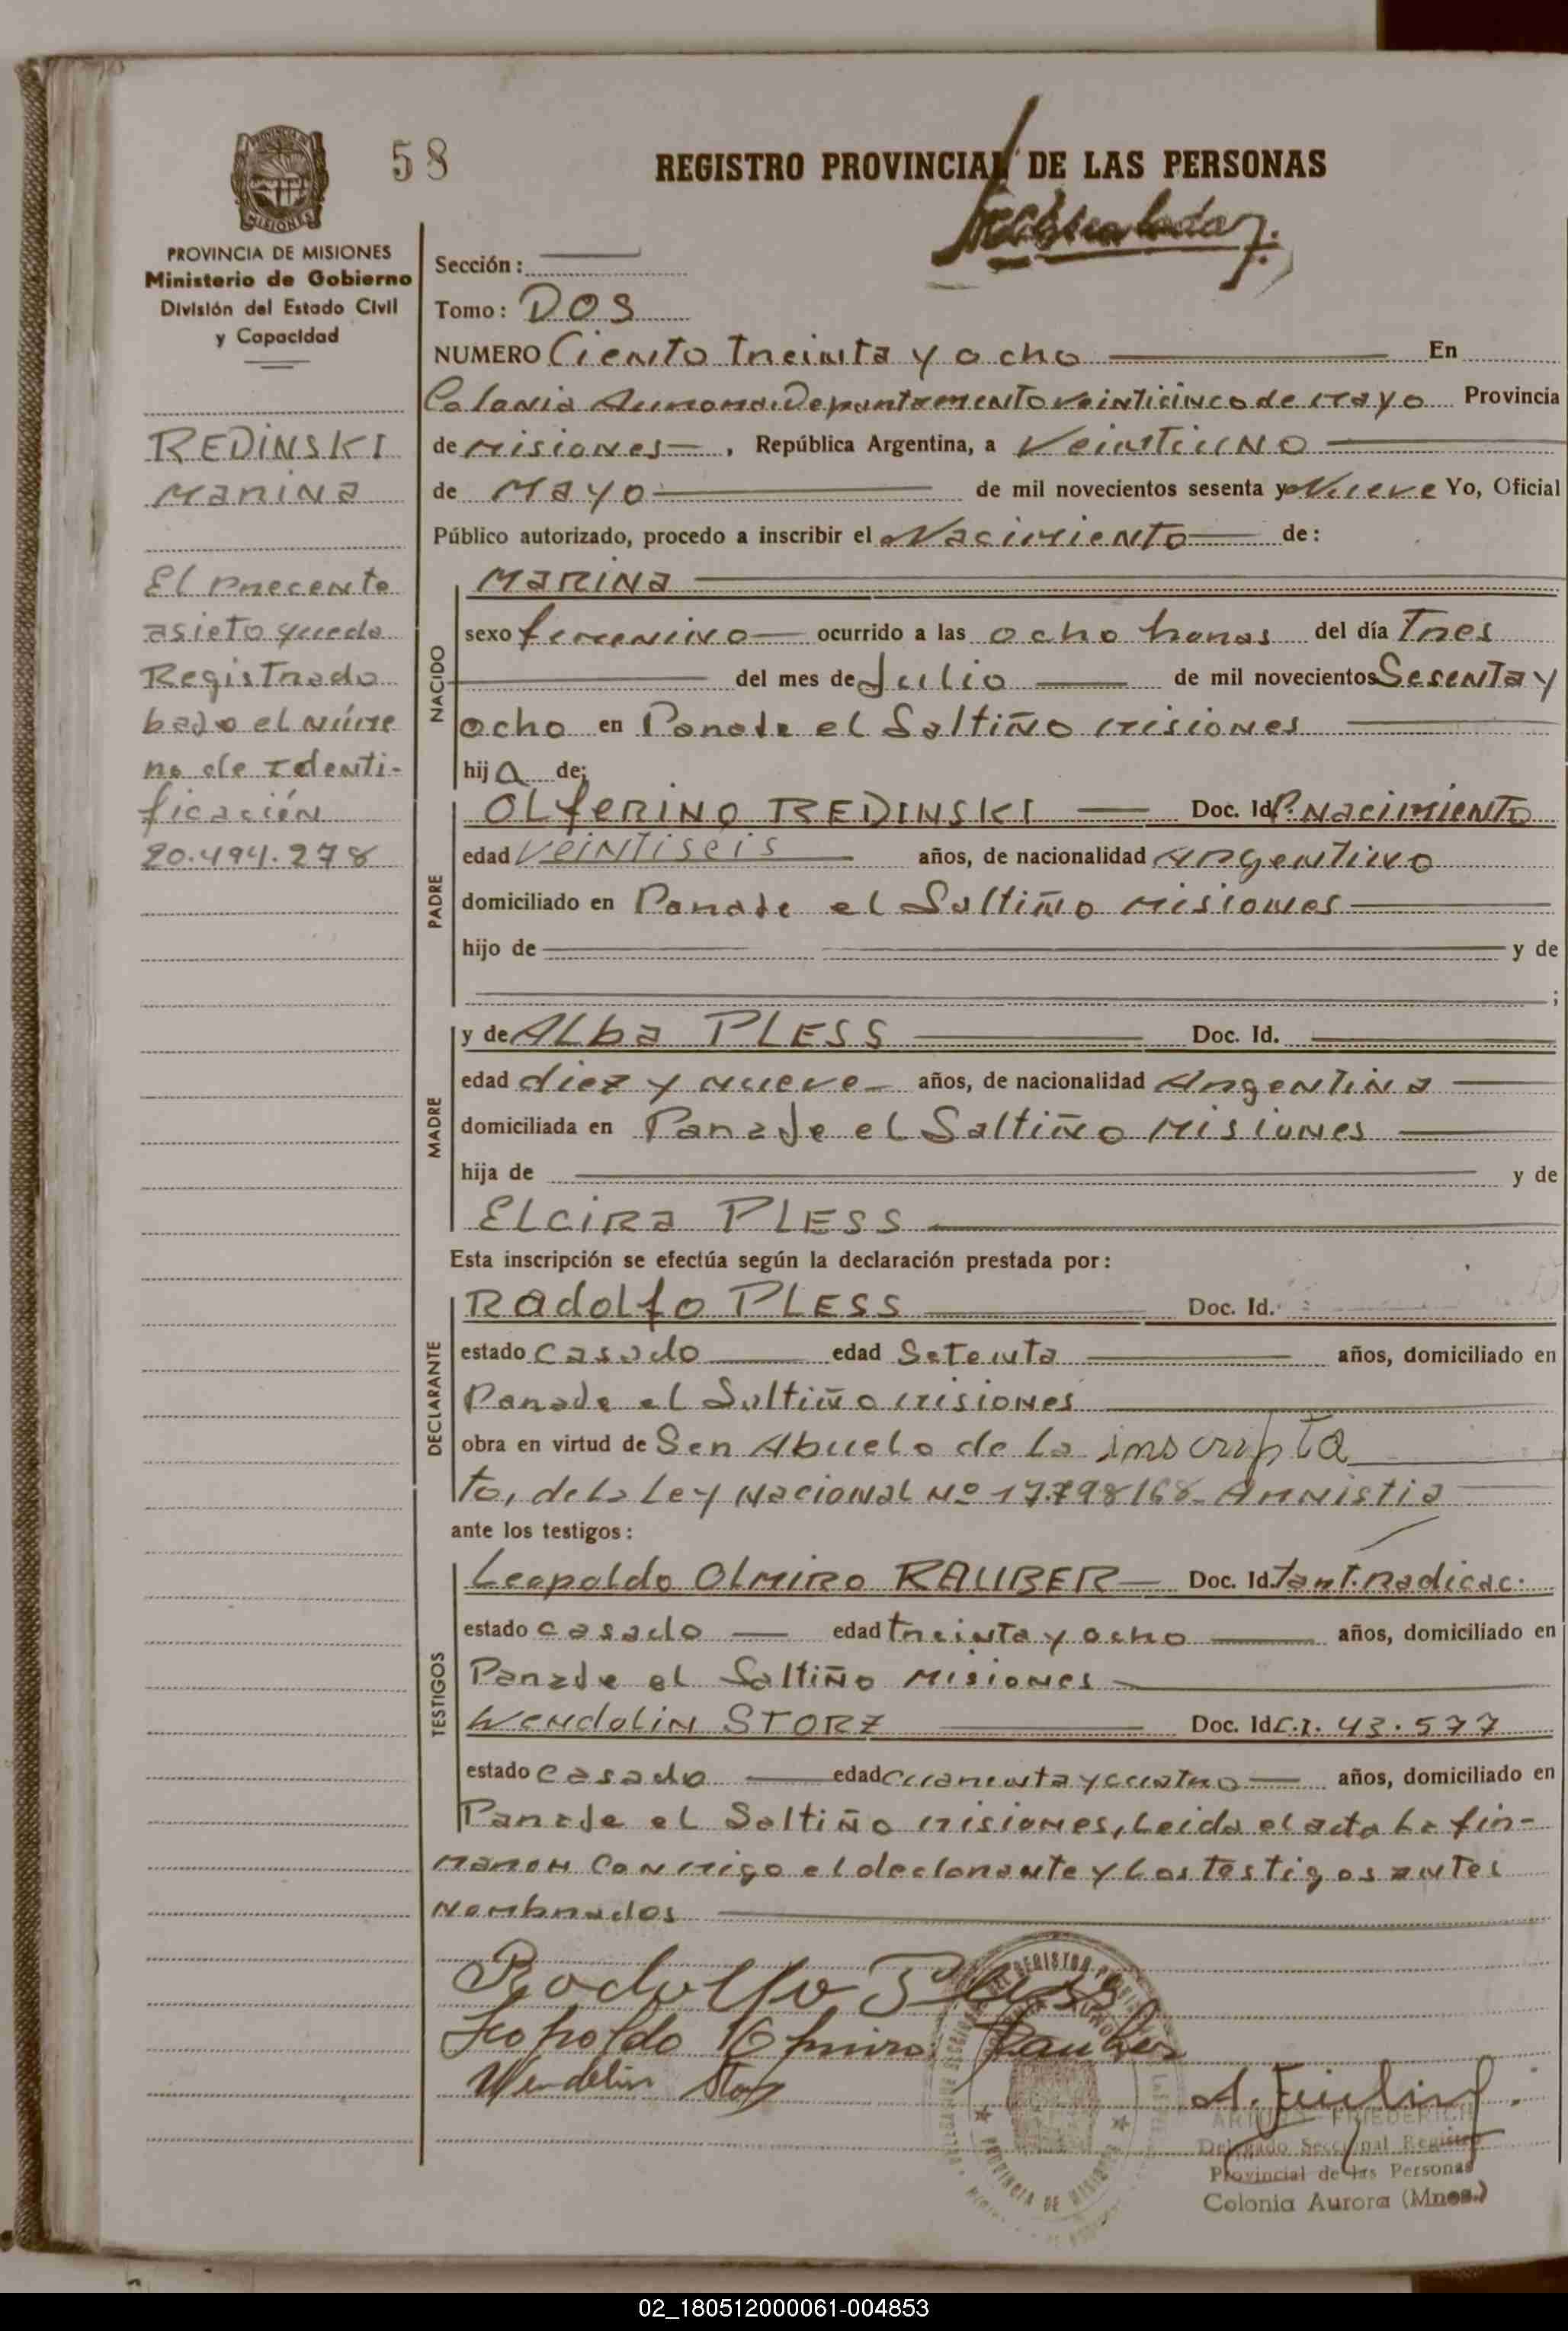 58
REGISTRO PROVINCIAL DE LAS PERSONAS
PROVINCIA DE MISIONES
Ministerio de Gobierno
División del Estado Civil
y Capacidad
REDINSKI
Marina
El precente
asieto queda
Registrado
bajo el núme
ro de Identi-
ficación
20.494.278
Sección:
Tomo: DOS
NUMERO Ciento Treinta y ocho En
Colonia Aurora. Departamento veinticinco de mayo Provincia
de Misiones, República Argentina, a Veintiuno
de Mayo de mil novecientos sesenta y Nueve Yo, Oficial
Público autorizado, procedo a inscribir el Nacimiento de:
NACIDO
MARINA
sexo femenino ocurrido a las ocho horas del día Tres
del mes de Julio de mil novecientos Sesenta y
ocho en Paraje el Saltiño Misiones
hija de:
PADRE
OLFERINO REDINSKI Doc. Id. P. Nacimiento
edad veintiseis años, de nacionalidad Argentino
domiciliado en Paraje el Saltiño Misiones
hijo de y de
;
MADRE
y de Alba PLESS Doc. Id.
edad diez y nueve años, de nacionalidad Argentina
domiciliada en Paraje el Saltiño Misiones
hija de y de
Elcira PLESS
Esta inscripción se efectúa según la declaración prestada por:
DECLARANTE
Rodolfo PLESS Doc. Id.
estado casado edad Setenta años, domiciliado en
Paraje el Saltiño Misiones
obra en virtud de Ser Abuelo de la inscripta
to, de la Ley Nacional Nº 17.798/68 Amnistia
ante los testigos:
TESTIGOS
Leopoldo Olmiro RAUBER Doc. Id. Tart. Radicac.
estado casado edad treinta y ocho años, domiciliado en
Paraje el Saltiño Misiones
Wendolin STORZ Doc. Id. C.I. 43.577
estado casado edad cuarenta y cuatro años, domiciliado en
Paraje el Saltiño Misiones, Leida el acta la fir-
maron conmigo el declarante y los testigos antes
nombrados
Rodolfo Pless
Leopoldo Olmiro Rauber
Wendelin Storz
PROVINCIA DE MISIONES
ARTURO FRIEDERICH
Delegado Seccional Registro
Provincial de las Personas
Colonia Aurora (Mnes.)
02_180512000061-004853